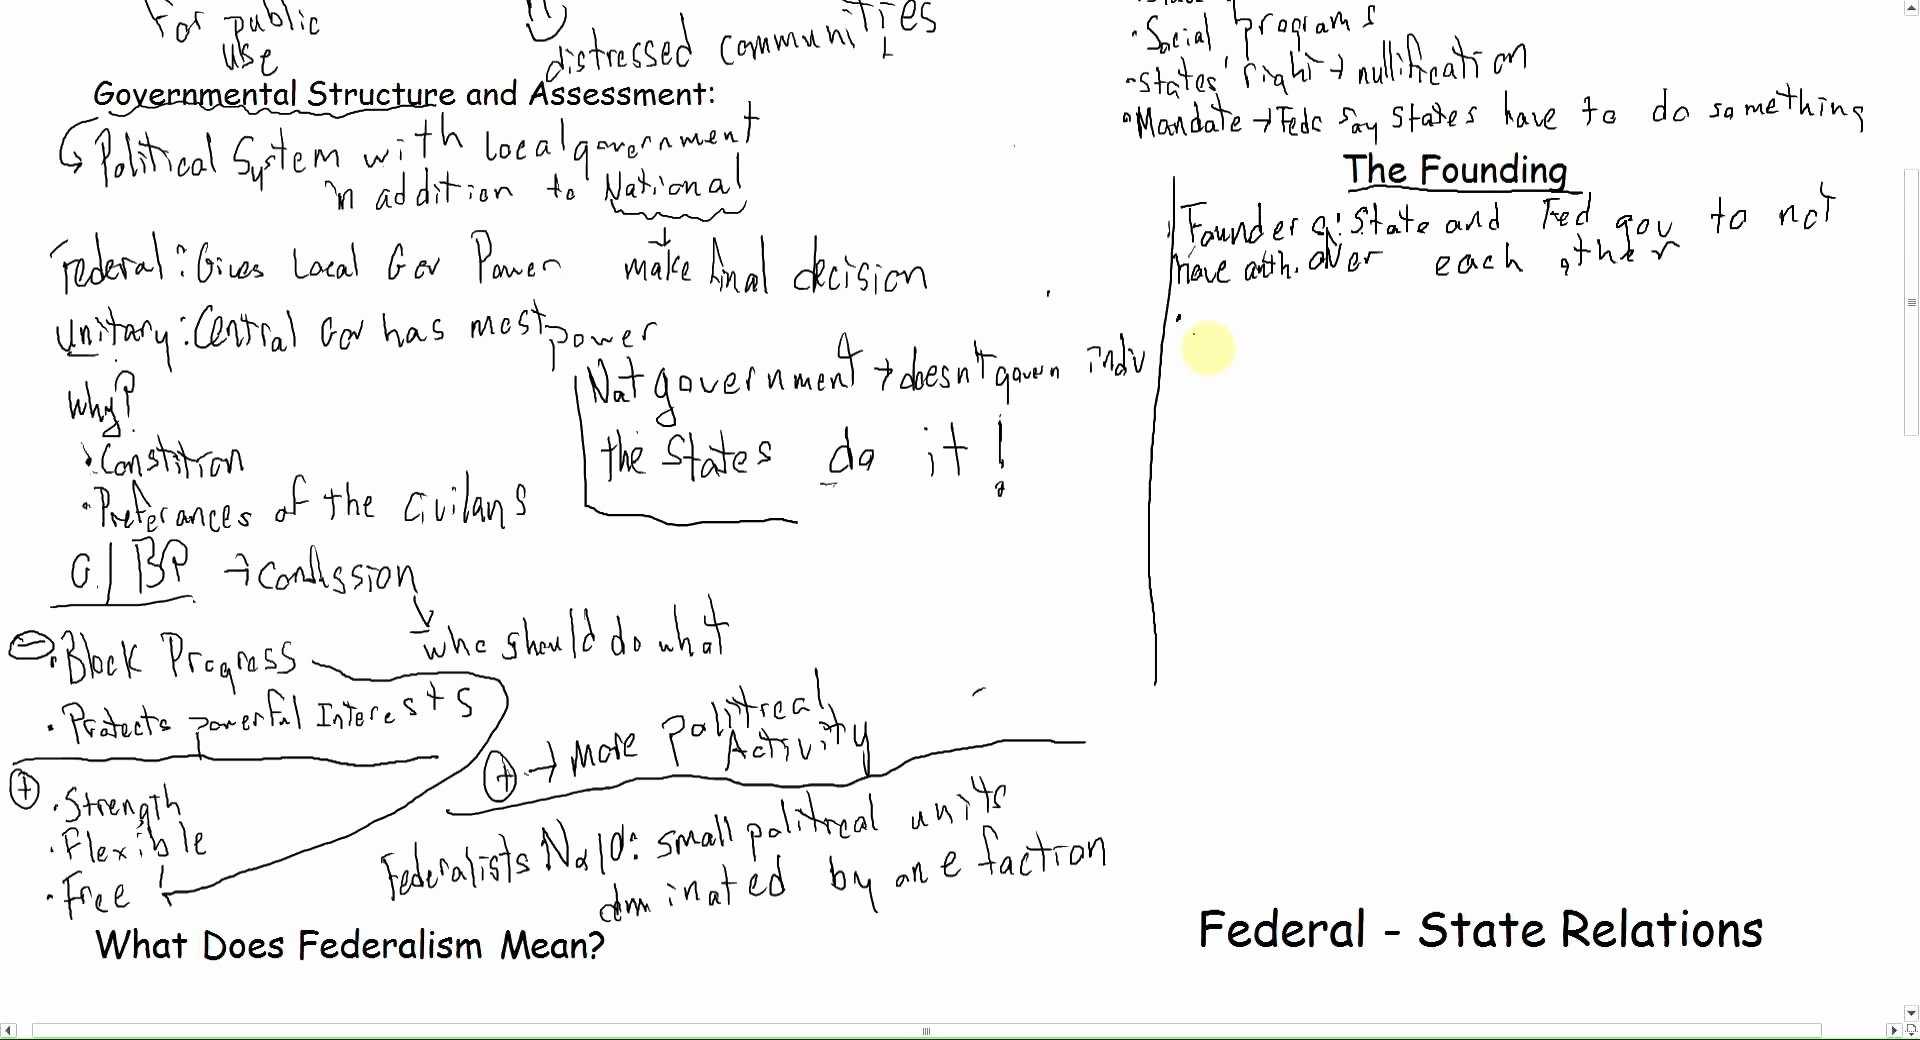 For public
use
distressed communities
Governmental Structure and Assessment:
Political System with local government
in addition to National
Federal: Gives Local Gov Power
make final decision
Unitary: Central Gov has most power
Why?
Constition
Preferances of the civilans
Nat government → doesn't govern indv
the States do it!
G./BP → confussion
who should do what
Block Progress
Protects powerful Interests
+ → More Politrcal
Activity
+ · Strength
· Flexible
· Free
Federalists No 10: small politrcal units
dominated by one faction
What Does Federalism Mean?
· Social programs
· States' right → nullification
· Mandate → Feds say States have to do something
The Founding
Founders: State and Fed gov to not
have auth. over each other
Federal - State Relations